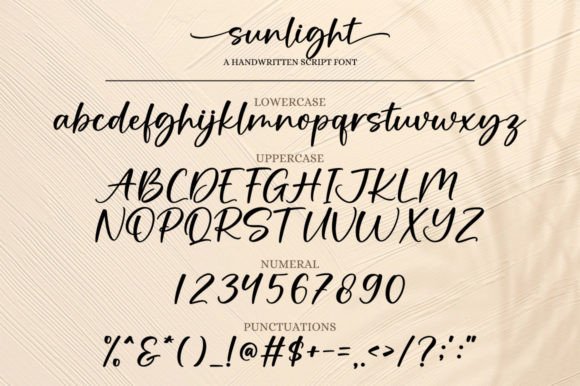 sunlight
A HANDWRITTEN SCRIPT FONT
LOWERCASE
abcdefghijklmnopqrstuvwxyz
UPPERCASE
ABCDEFGHIJKLM
NOPQRSTUVWXYZ
NUMERAL
1234567890
PUNCTUATIONS
%^&*()_!@#$+-=,.<>/?;':"